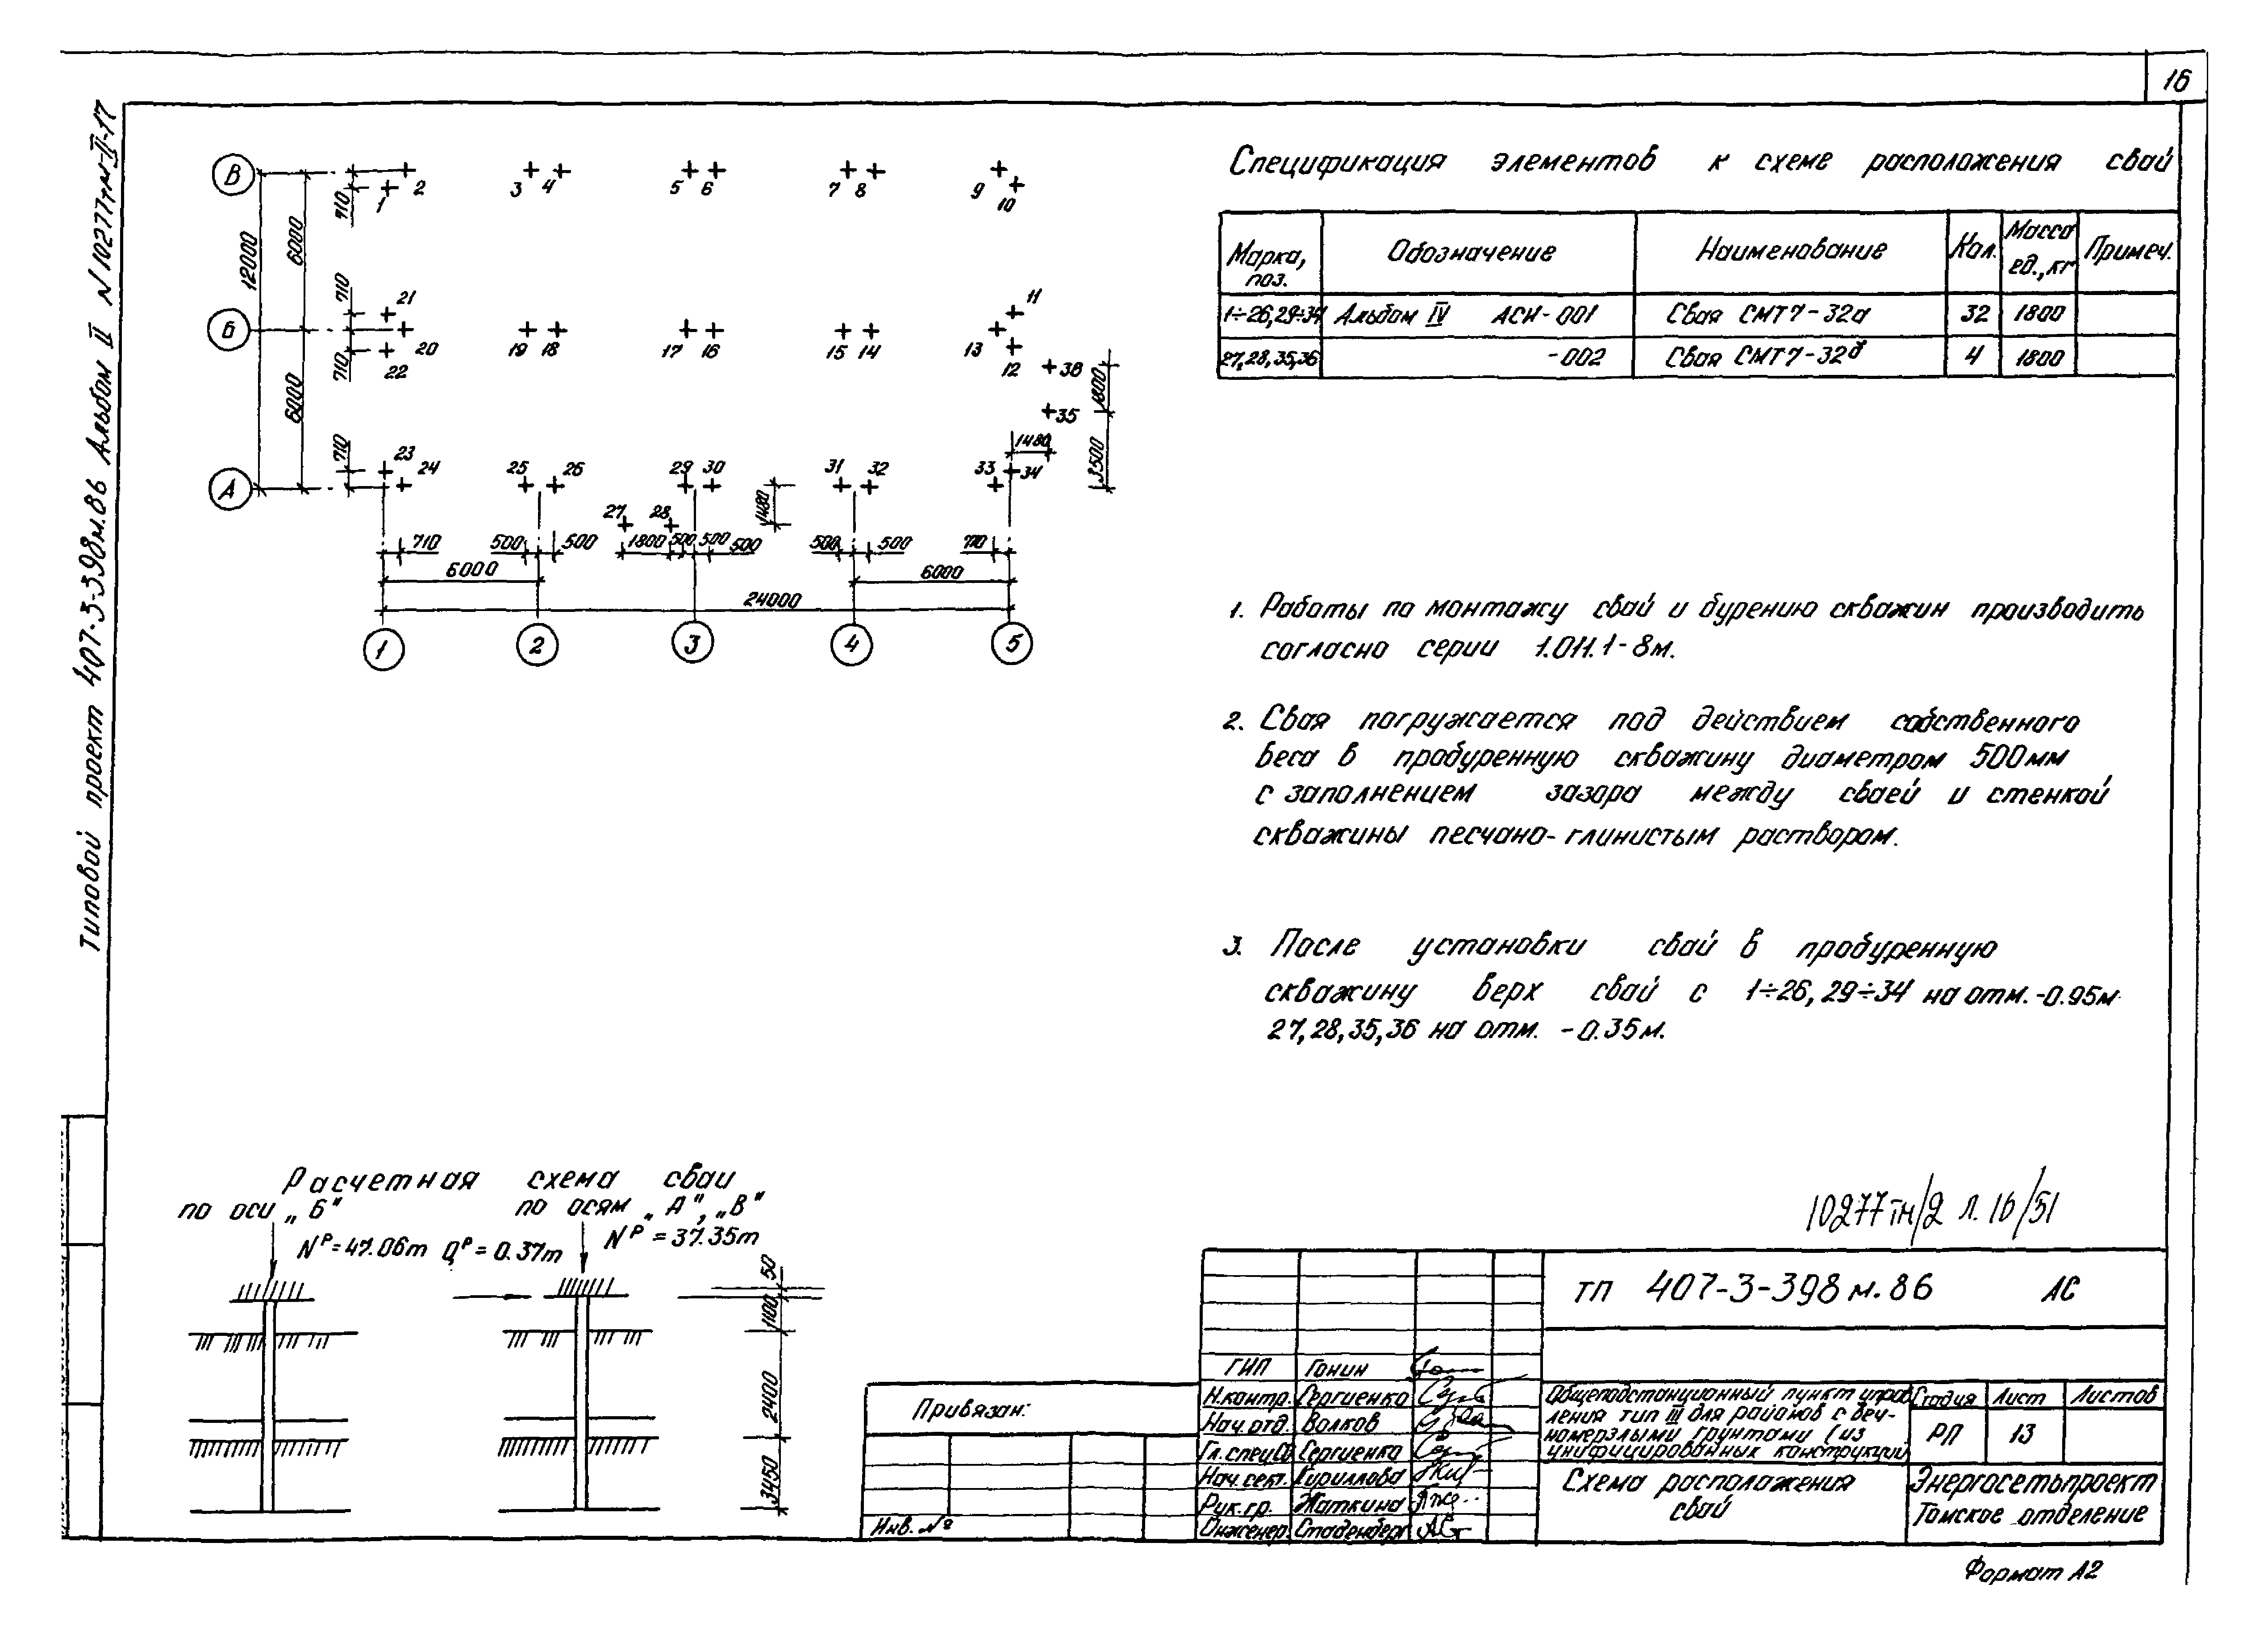 16
Типовой проект 407-3-398м.86 Альбом II N 10277тм-II-17
В
Б
А
1 2 3 4 5 6 7 8 9 10
21 20 22 19 18 17 16 15 14 13 11 12 36 35
23 24 25 26 29 30 31 32 33 34
27 28
710 6000 12000
710 710 6000
710
1800 3500 1480
1480
710 500 500 1800 500 500 500 500 500 710
6000 6000
24000
1 2 3 4 5
Спецификация элементов к схеме расположения свай
Марка, поз. Обозначение Наименование Кол. Масса ед., кг Примеч.
1÷26,29÷34 Альбом IV АСИ-001 Свая СМТ7-32а 32 1800
27,28,35,36 -002 Свая СМТ7-32б 4 1800
1. Работы по монтажу свай и бурению скважин производить
согласно серии 1.011.1-8м.
2. Свая погружается под действием собственного
веса в пробуренную скважину диаметром 500мм
с заполнением зазора между сваей и стенкой
скважины песчано-глинистым раствором.
3. После установки свай в пробуренную
скважину верх свай с 1÷26, 29÷34 на отм. -0.95м
27,28,35,36 на отм. -0.35м.
Расчетная схема сваи
по оси „Б" по осям „А", „В"
Nᵖ=47.06т Qᵖ=0.37т Nᵖ=37.35т
50
1100
2400
3450
10277тм/2 л.16/51
ТП 407-3-398м.86 АС
ГИП Гонин
Н.контр. Сергиенко
Нач.отд. Волков
Гл.спецСО Сергиенко
Нач.сект. Кириллова
Рук.гр. Жаткина
Инженер Стаденберг
Привязан:
Инв. №
Общеподстанционный пункт управ-
ления тип III для районов с веч-
номерзлыми грунтами (из
унифицированных конструкций
Стадия Лист Листов
РП 13
Схема расположения
свай
Энергосетьпроект
Томское отделение
Формат А2